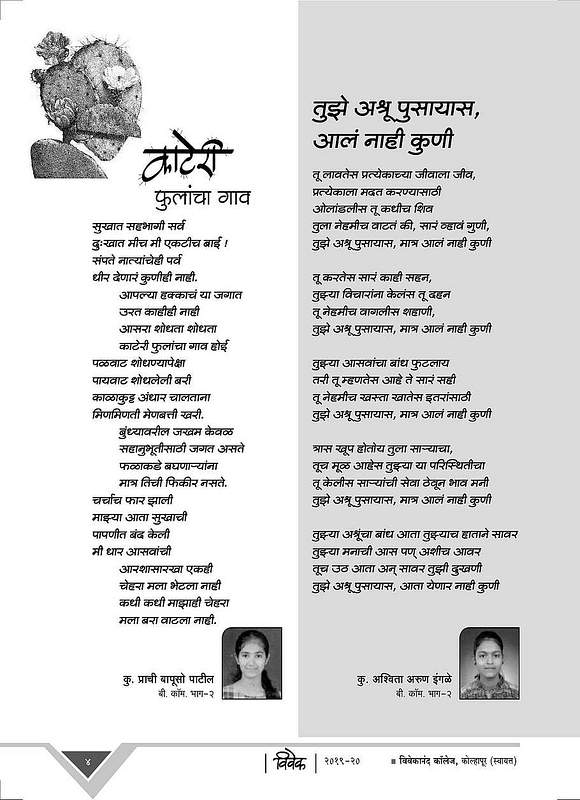 काटेरी
फुलांचा गाव
सुखात सहभागी सर्व
दुःखात मीच मी एकटीच बाई !
संपते नात्यांचेही पर्व
धीर देणारं कुणीही नाही.
आपल्या हक्काचं या जगात
उरत काहीही नाही
आसरा शोधता शोधता
काटेरी फुलांचा गाव होई
पळवाट शोधण्यापेक्षा
पायवाट शोधलेली बरी
काळाकुट्ट अंधार चालताना
मिणमिणती मेणबत्ती खरी.
बुंध्यावरील जखम केवळ
सहानुभूतीसाठी जगत असते
फळाकडे बघणाऱ्यांना
मात्र तिची फिकीर नसते.
चर्चाच फार झाली
माझ्या आता सुखाची
पापणीत बंद केली
मी धार आसवांची
आरशासारखा एकही
चेहरा मला भेटला नाही
कधी कधी माझाही चेहरा
मला बरा वाटला नाही.
कु. प्राची बापूसो पाटील
बी. कॉम. भाग-२
तुझे अश्रू पुसायास,
आलं नाही कुणी
तू लावतेस प्रत्येकाच्या जीवाला जीव,
प्रत्येकाला मदत करण्यासाठी
ओलांडलीस तू कधीच शिव
तुला नेहमीच वाटतं की, सारं व्हावं गुणी,
तुझे अश्रू पुसायास, मात्र आलं नाही कुणी
तू करतेस सारं काही सहन,
तुझ्या विचारांना केलंस तू दहन
तू नेहमीच वागलीस शहाणी,
तुझे अश्रू पुसायास, मात्र आलं नाही कुणी
तुझ्या आसवांचा बांध फुटलाय
तरी तू म्हणतेस आहे ते सारं सही
तू नेहमीच खस्ता खातेस इतरांसाठी
तुझे अश्रू पुसायास, मात्र आलं नाही कुणी
त्रास खूप होतोय तुला साऱ्याचा,
तूच मूळ आहेस तुझ्या या परिस्थितीचा
तू केलीस साऱ्यांची सेवा ठेवून भाव मनी
तुझे अश्रू पुसायास, मात्र आलं नाही कुणी
तुझ्या अश्रूंचा बांध आता तुझ्याच हाताने सावर
तुझ्या मनाची आस पण् अशीच आवर
तूच उठ आता अन् सावर तुझी दुखणी
तुझे अश्रू पुसायास, आता येणार नाही कुणी
कु. अश्विता अरुण इंगळे
बी. कॉम. भाग-२
४
विवेक
२०१९-२०
विवेकानंद कॉलेज, कोल्हापूर (स्वायत्त)